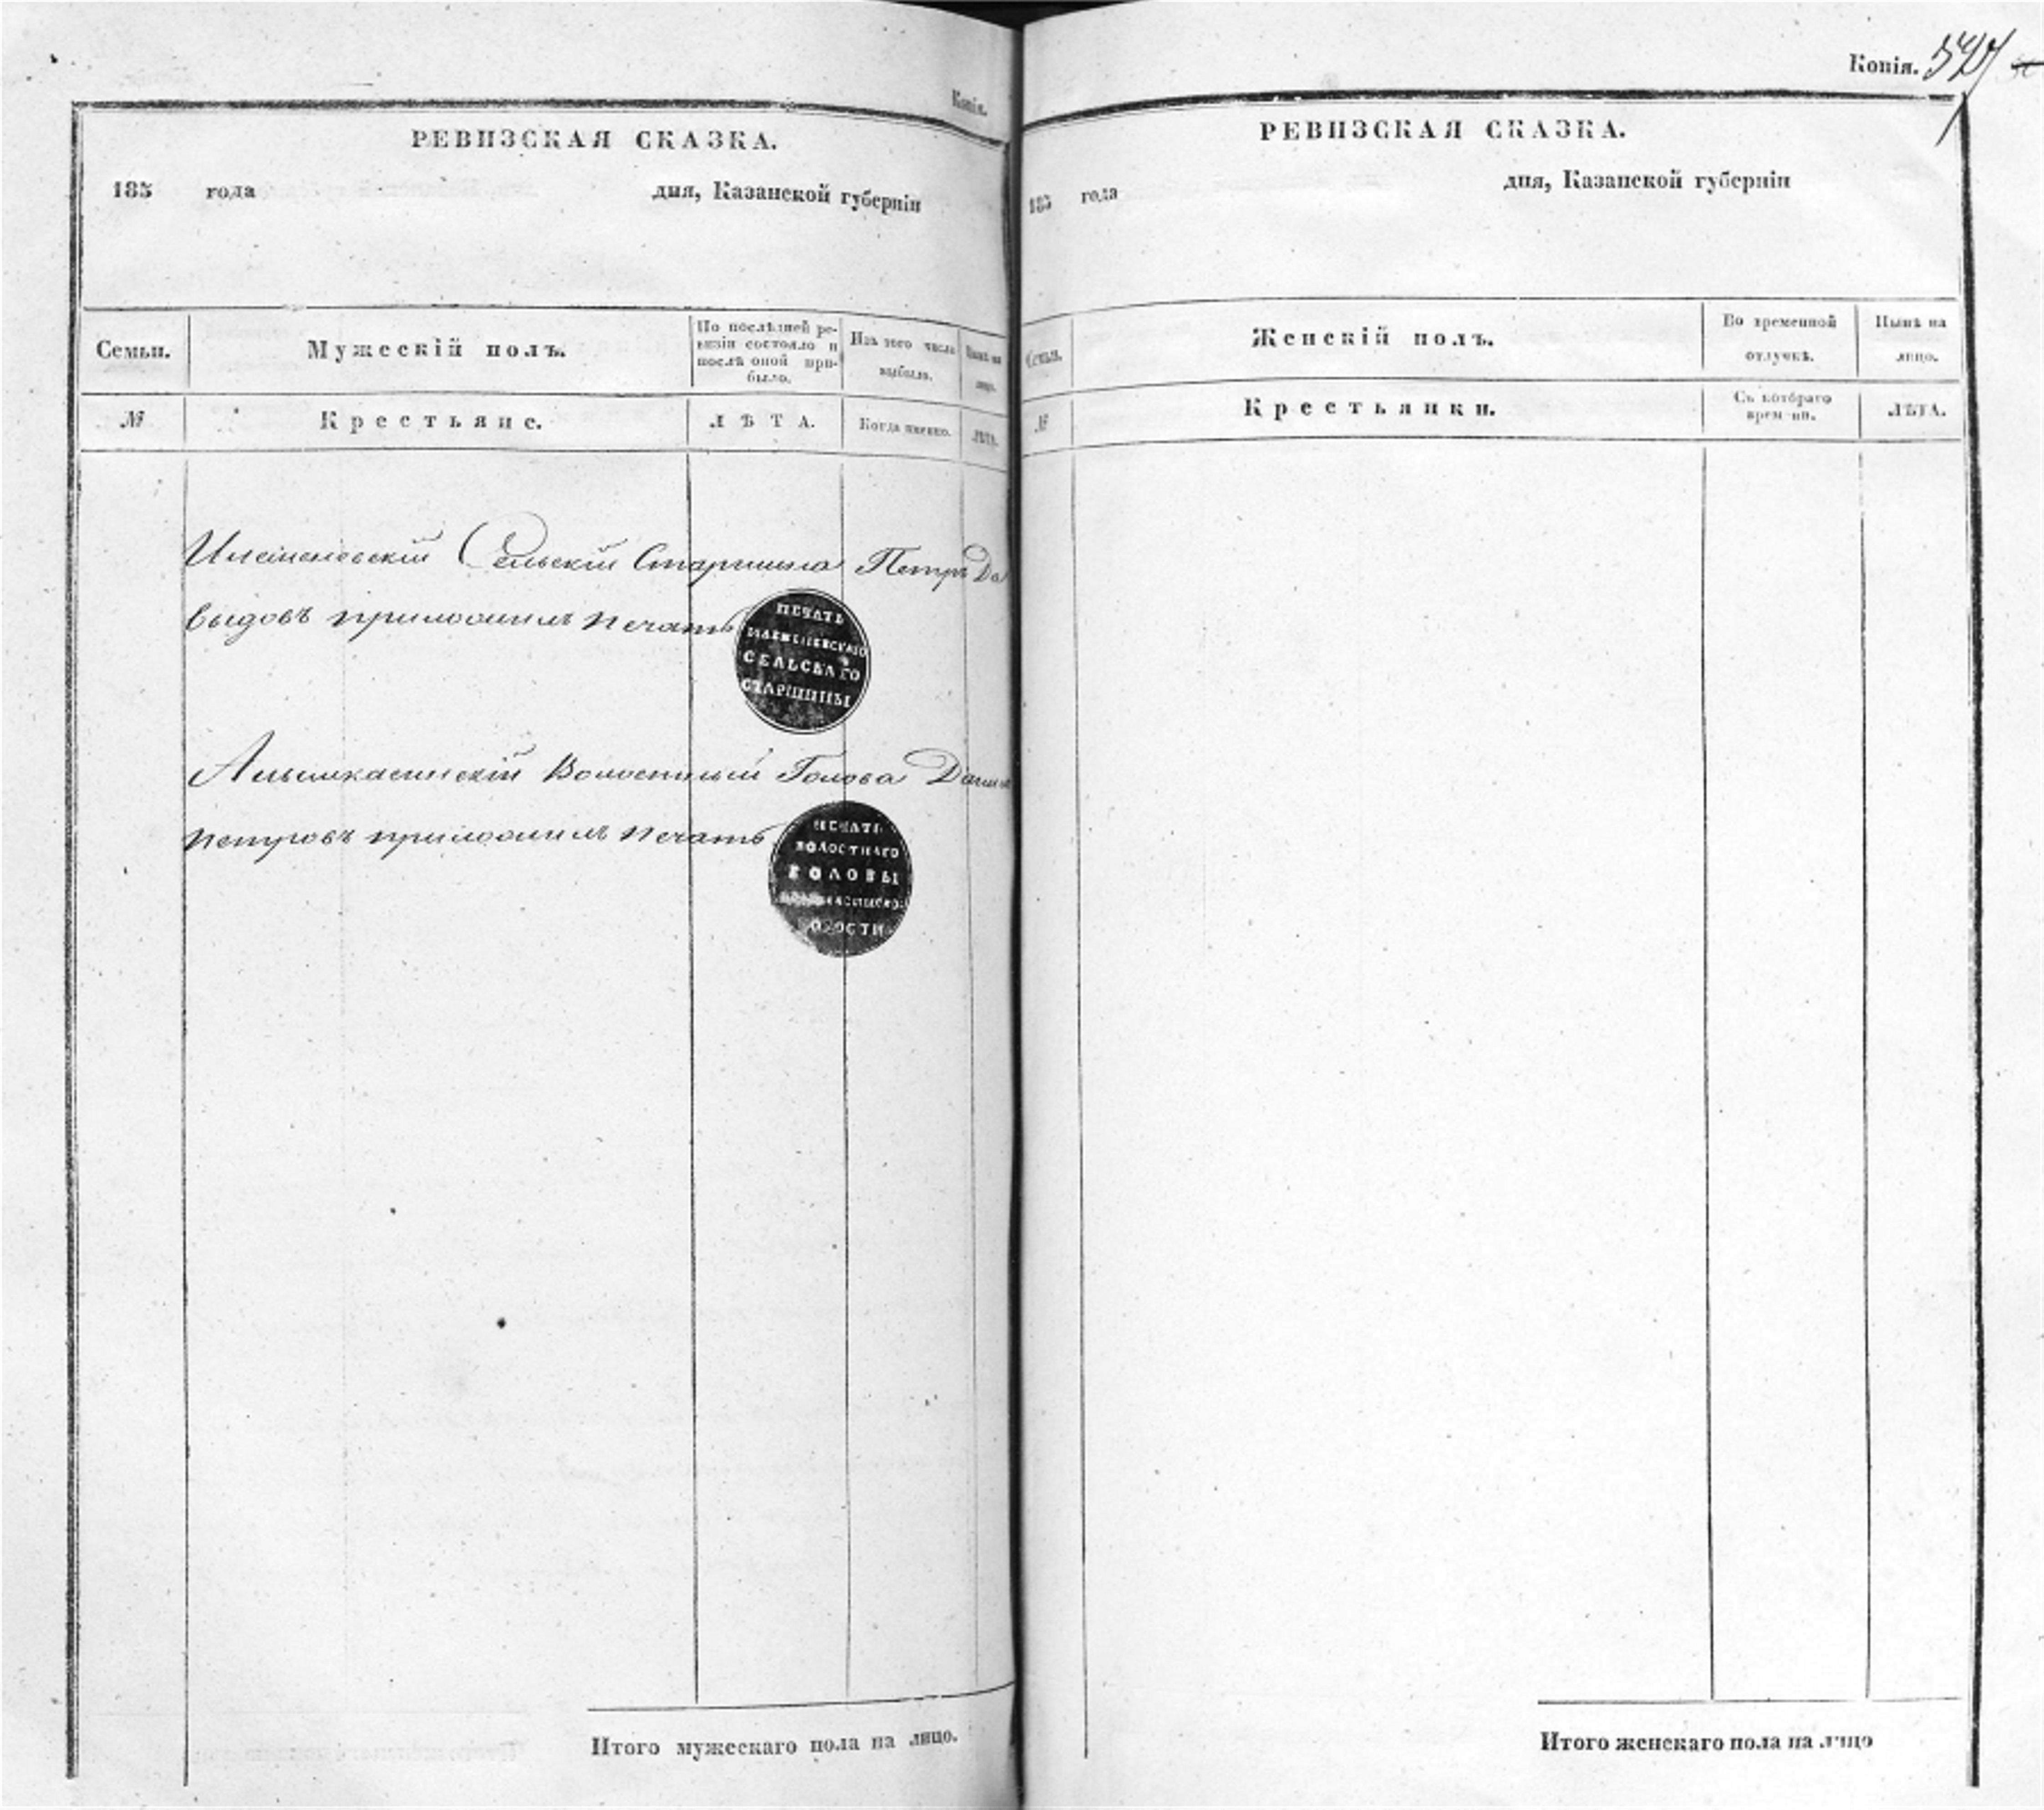 Копія.
РЕВИЗСКАЯ СКАЗКА.
185 года дня, Казанской губерніи
Семьи.
Мужескій полъ.
По послѣдней ре-
визіи состояло и
послѣ оной при-
было.
Изъ того числа
выбыло.
Нынѣ на
лицо.
№
Крестьяне.
ЛѢТА.
Когда именно.
ЛѢТА.
Сельскій Старшина Петръ Да
выдовъ приложилъ печать
ПЕЧАТЬ
СЕЛЬСКАГО
СТАРШИНЫ
Волостный Голова
Петровъ приложилъ печать
ПЕЧАТЬ
ВОЛОСТНАГО
ГОЛОВЫ
Итого мужескаго пола на лицо.
Копія.
РЕВИЗСКАЯ СКАЗКА.
185 года дня, Казанской губерніи
Семьи.
Женскій полъ.
Во временной
отлучкѣ.
Нынѣ на
лицо.
№
Крестьянки.
Съ котораго
времени.
ЛѢТА.
Итого женскаго пола на лицо